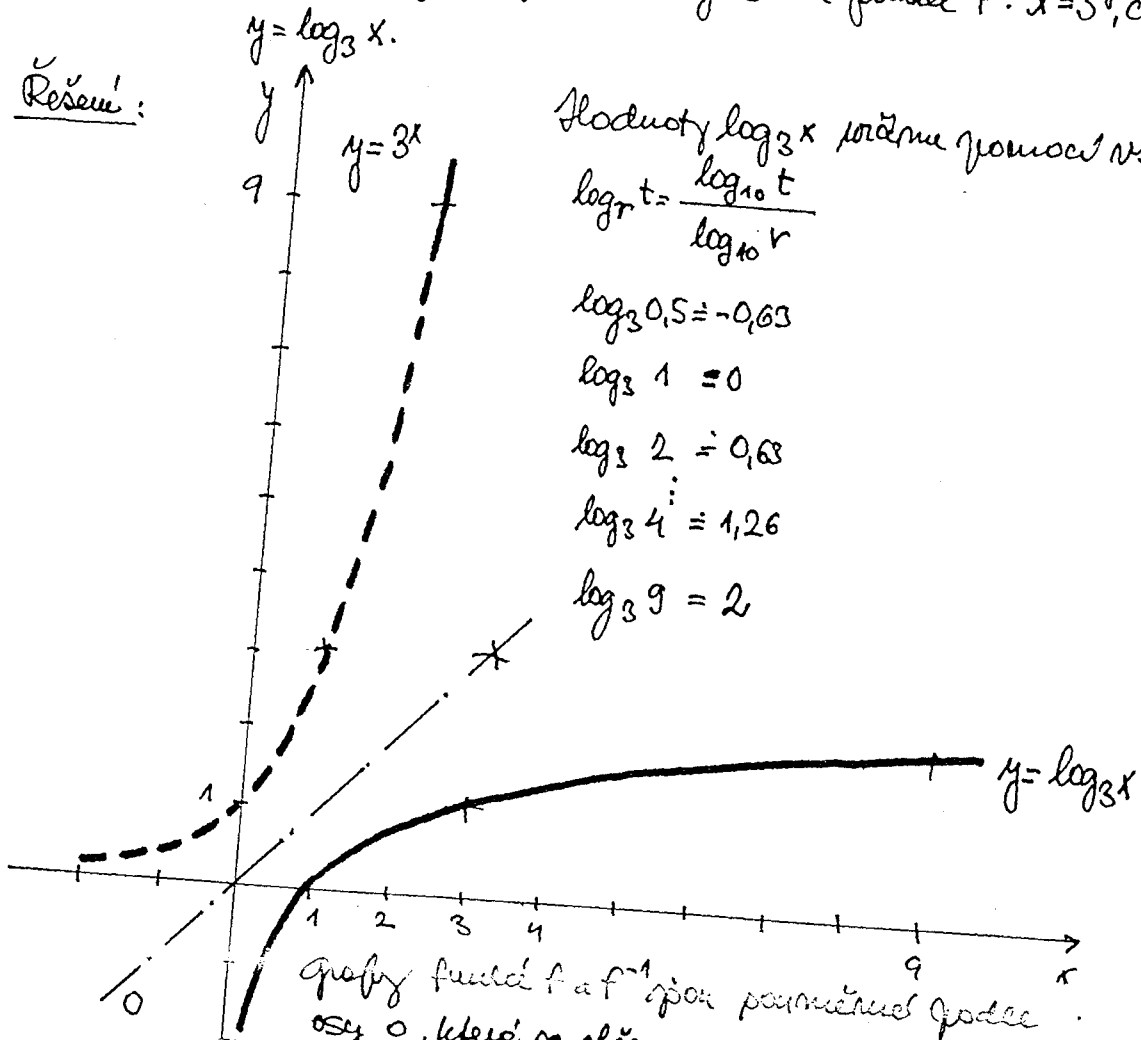 x = 3
y = log₃ x.
Řešení:
y
y = 3ˣ
9
Hodnoty log₃ x určíme pomocí
logᵣ t = log₁₀ t / log₁₀ r
log₃ 0,5 ≐ -0,63
log₃ 1 = 0
log₃ 2 ≐ 0,63
⋮
log₃ 4 ≐ 1,26
log₃ 9 = 2
1
y = log₃ x
1 2 3 4 9 x
o
Grafy funkcí f a f⁻¹ jsou souměrné podle
osy o, která